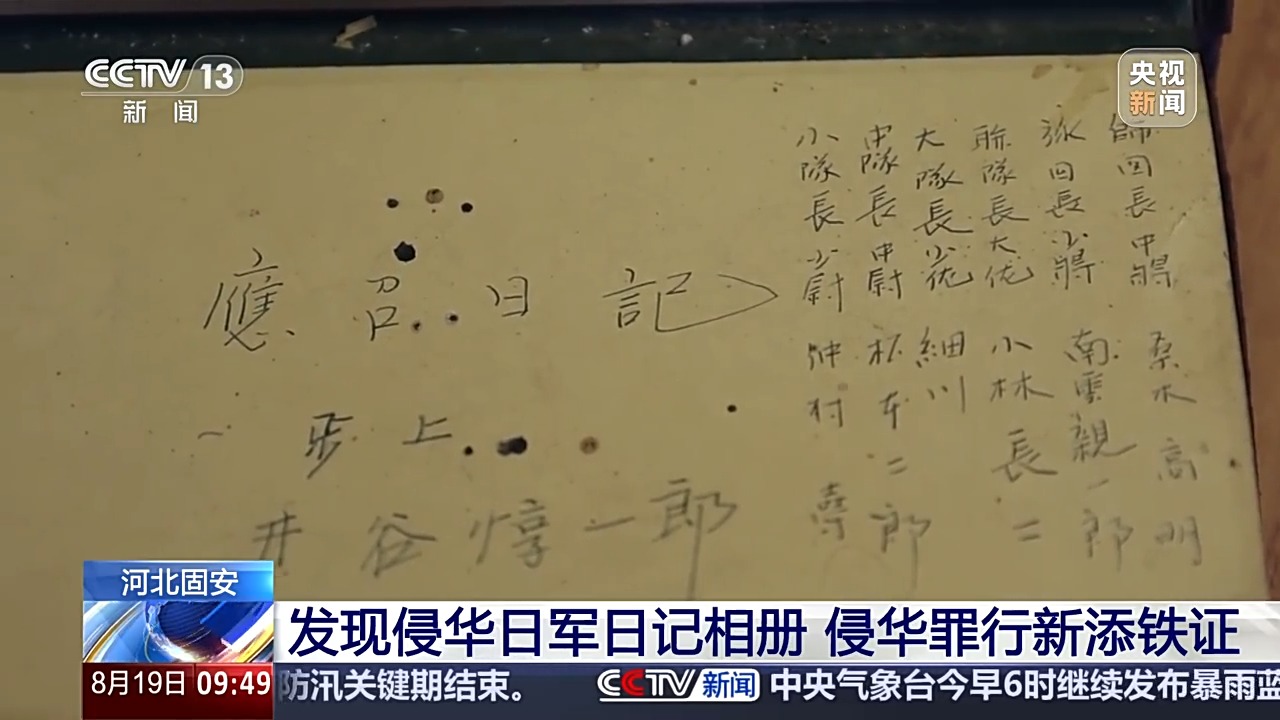 CCTV 13
新闻
央视
新闻
師団長中將 桑木高明
旅団長少將 南雲親一郎
聯隊長大佐 小林長二
大隊長少佐 細川
中隊長中尉 杯本二郎
小隊長少尉
應召日記
一歩上
井谷惇一郎
河北固安
发现侵华日军日记相册 侵华罪行新添铁证
8月19日 09:49
防汛关键期结束。 CCTV新闻 中央气象台今早6时继续发布暴雨蓝